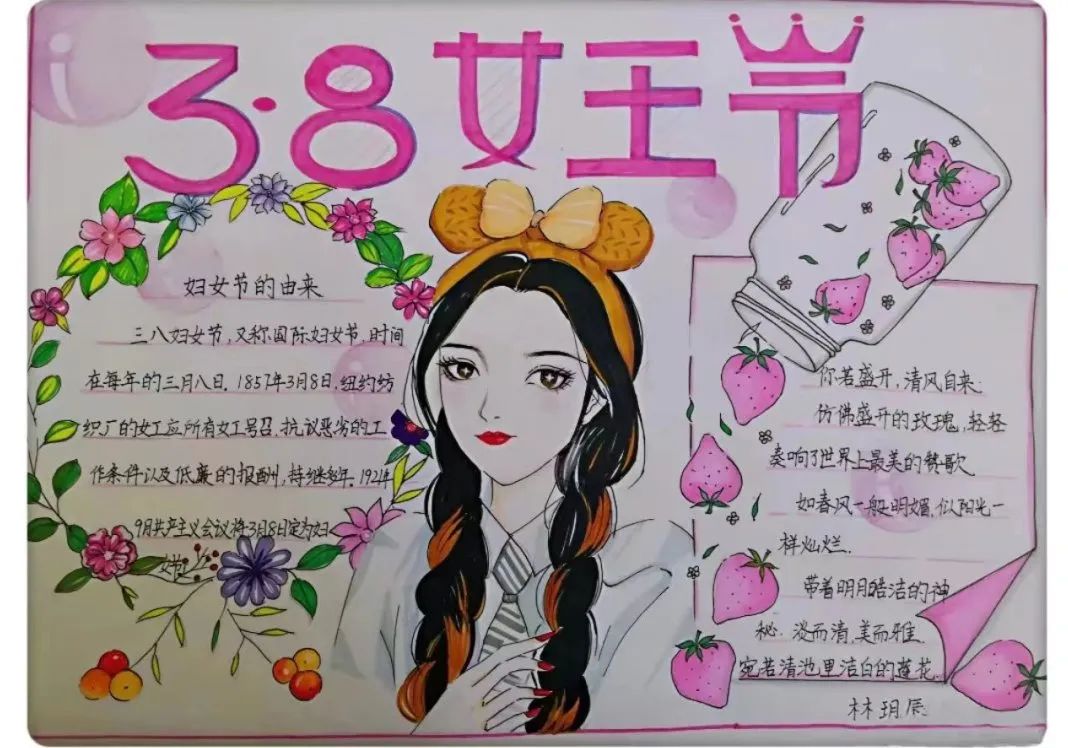 3·8女王节
妇女节的由来
三八妇女节,又称国际妇女节,时间
在每年的三月八日,1857年3月8日,纽约纺
织厂的女工应所有女工号召,抗议恶劣的工
作条件以及低廉的报酬,持继多年。1921年
9月共产主义会议将3月8日定为妇
女节
你若盛开,清风自来.
仿佛盛开的玫瑰,轻轻
奏响了世界上最美的赞歌
如春风一般明媚,似阳光一
样灿烂.
带着明月皓洁的神
秘.淡而清,美而雅.
宛若清池里洁白的莲花.
林玥辰